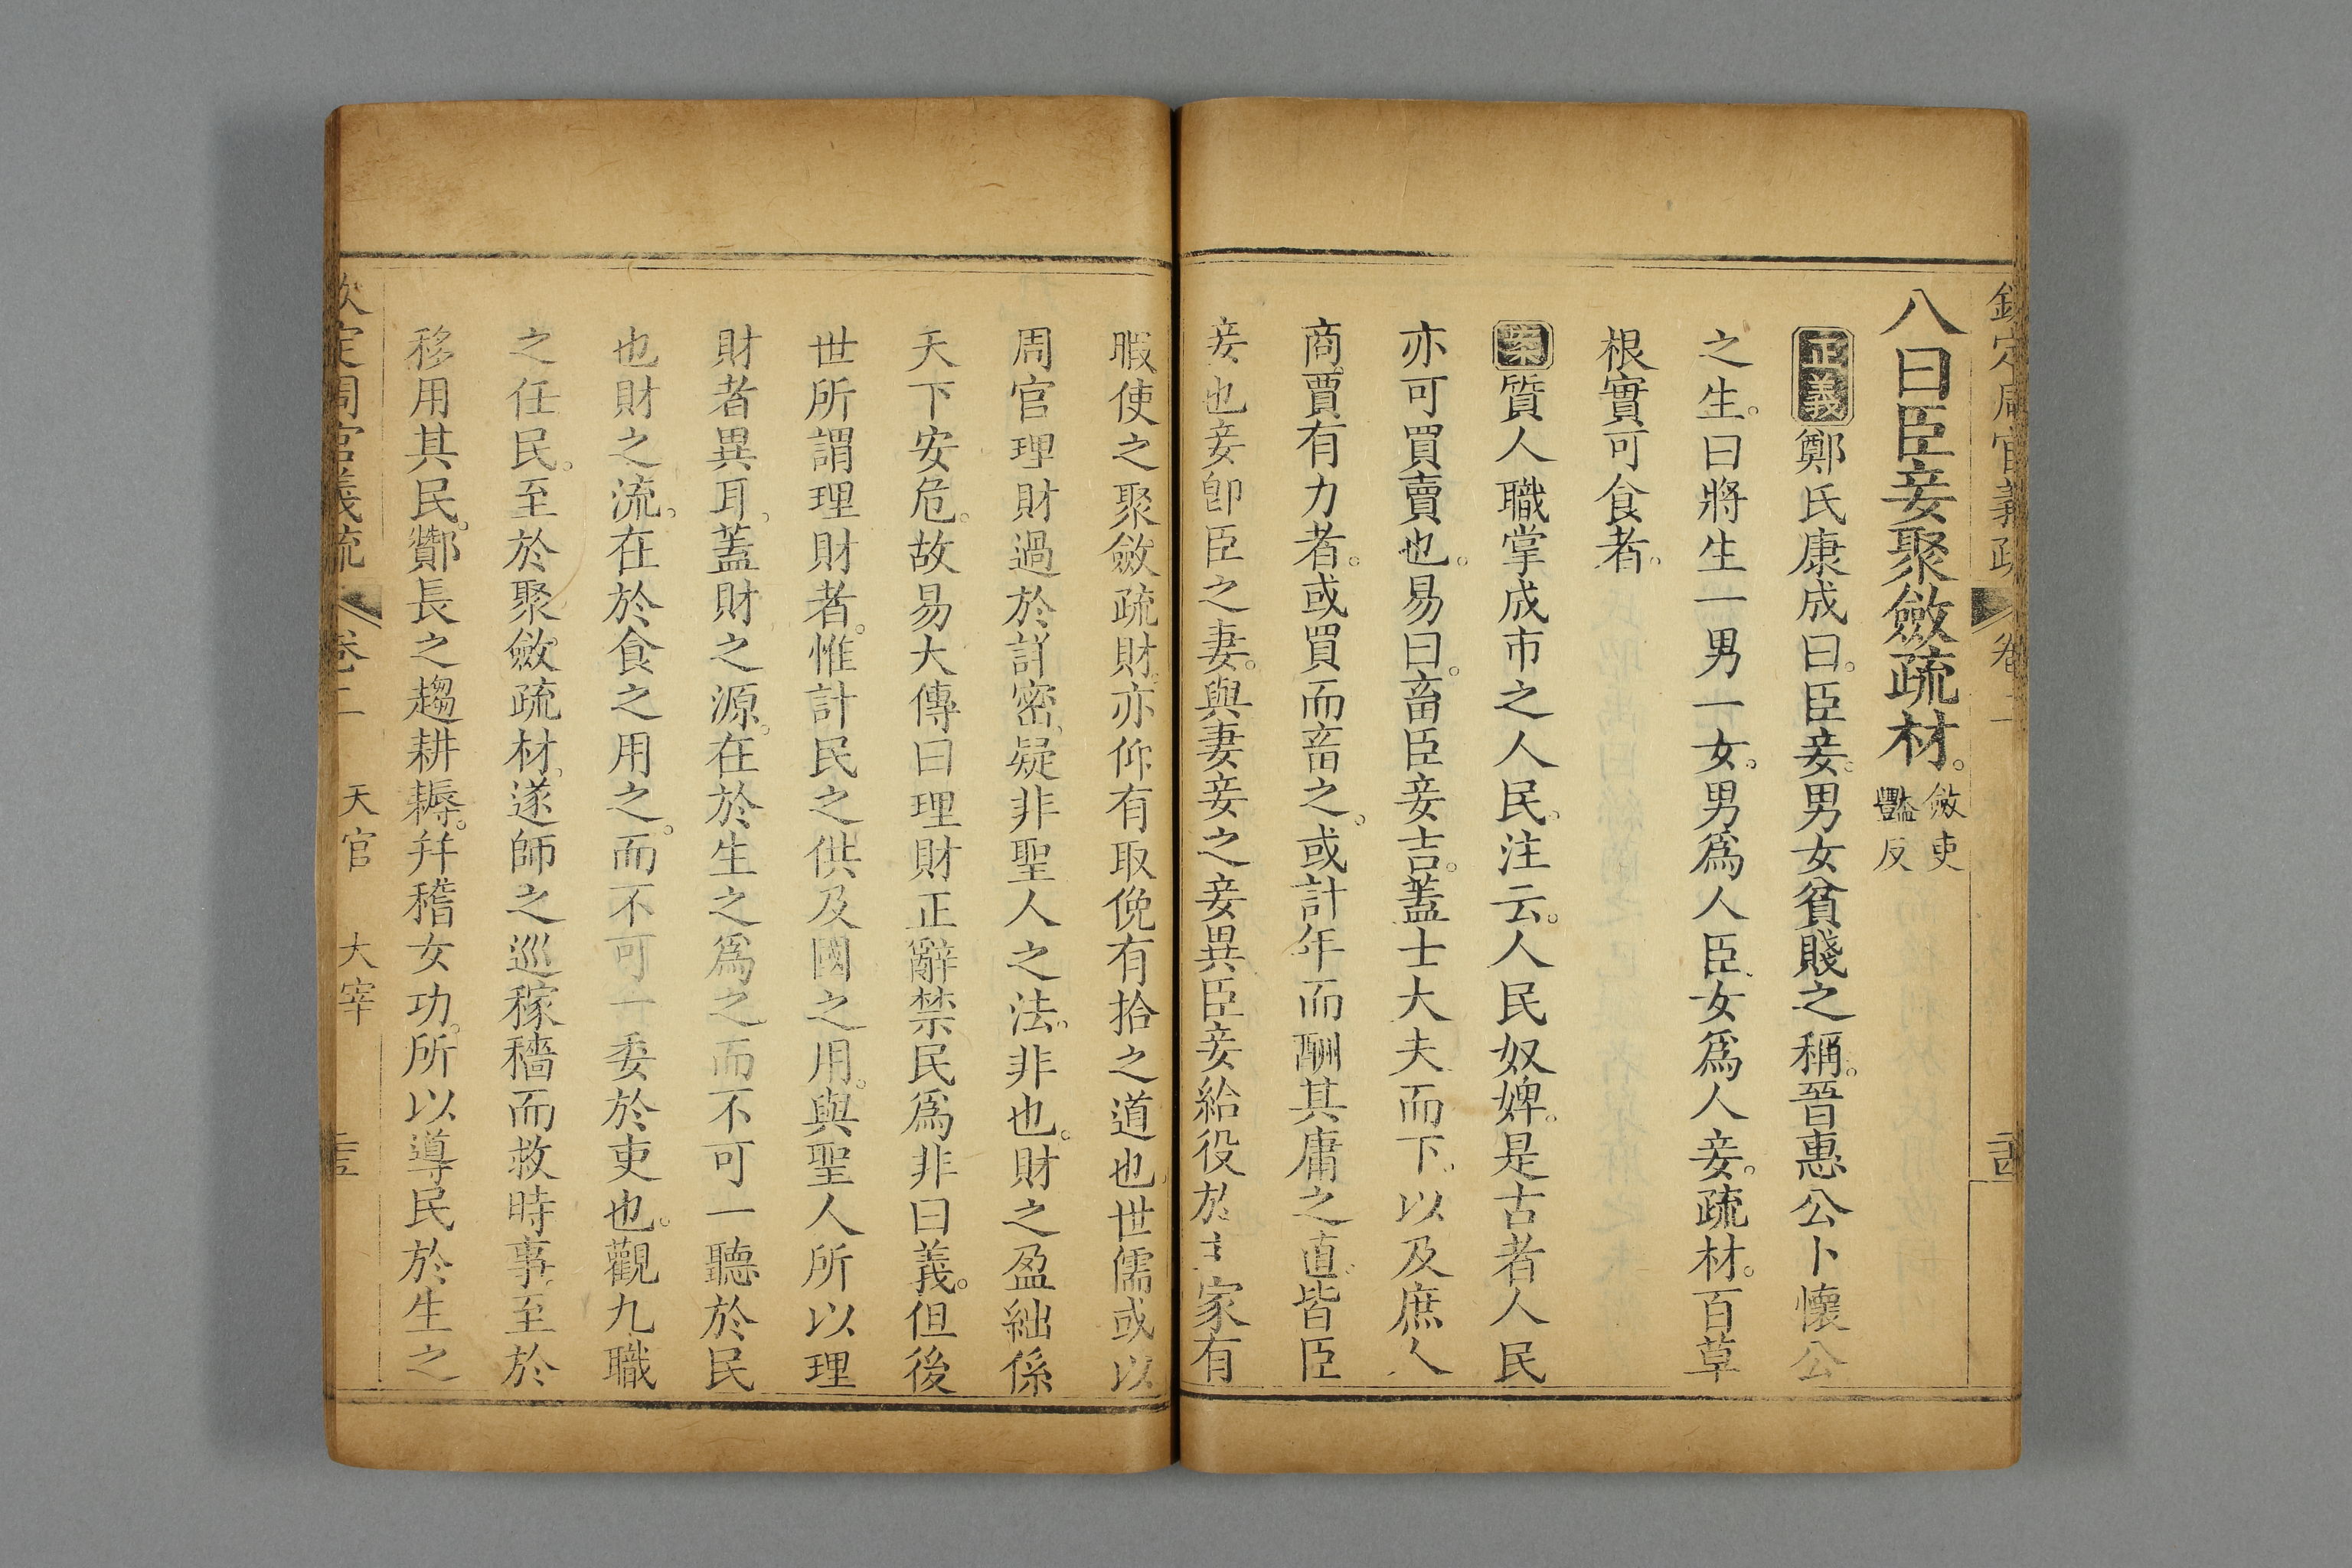 欽定周官義疏 卷二
八曰臣妾聚斂疏材。斂吏
豔反
正義鄭氏康成曰。臣妾。男女貧賤之稱。晉惠公卜懷公
之生。曰將生一男一女。男爲人臣、女爲人妾。疏材。百草
根實可食者。
案質人職掌成市之人民、注云。人民奴婢。是古者人民
亦可買賣也。易曰。畜臣妾吉。蓋士大夫而下、以及庶人
商賈有力者。或買而畜之。或計年而酬其庸之直。皆臣
妾也妾卽臣之妻。與妻妾之妾異臣妾給役於主家有
暇使之聚斂疏財。亦仰有取俛有拾之道也世儒或以
周官理財過於詳密、疑非聖人之法。非也。財之盈絀係
天下安危。故易大傳曰理財正辭禁民爲非曰義。但後
世所謂理財者。惟計民之供及國之用。與聖人所以理
財者異耳。蓋財之源。在於生之爲之而不可一聽於民
也財之流。在於食之用之。而不可一委於吏也。觀九職
之任民。至於聚斂疏材。遂師之巡稼穡而救時事。至於
移用其民。酇長之趨耕耨。幷稽女功。所以導民於生之
欽定周官義疏 卷二 天官 大宰